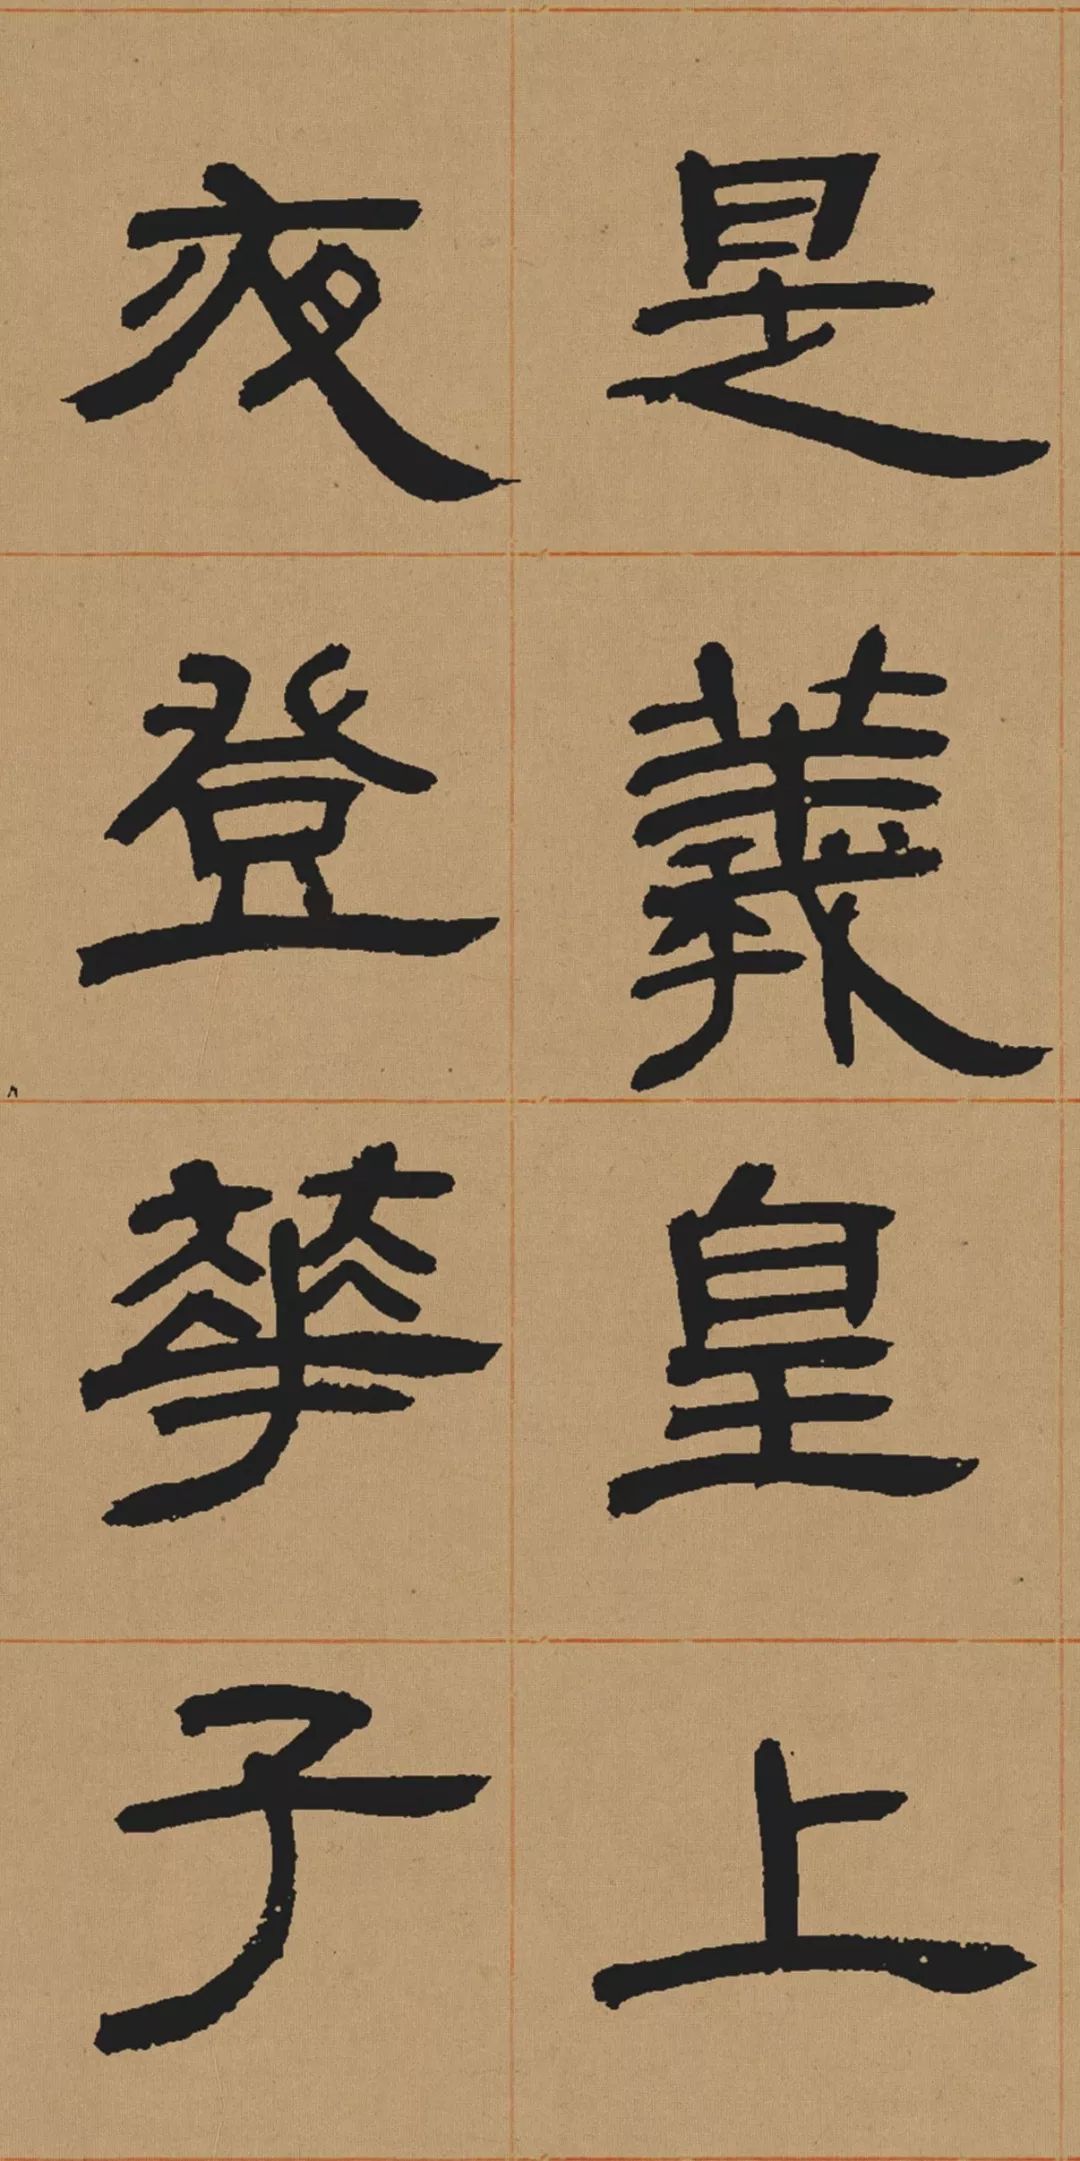 是羲皇上
夜登華子